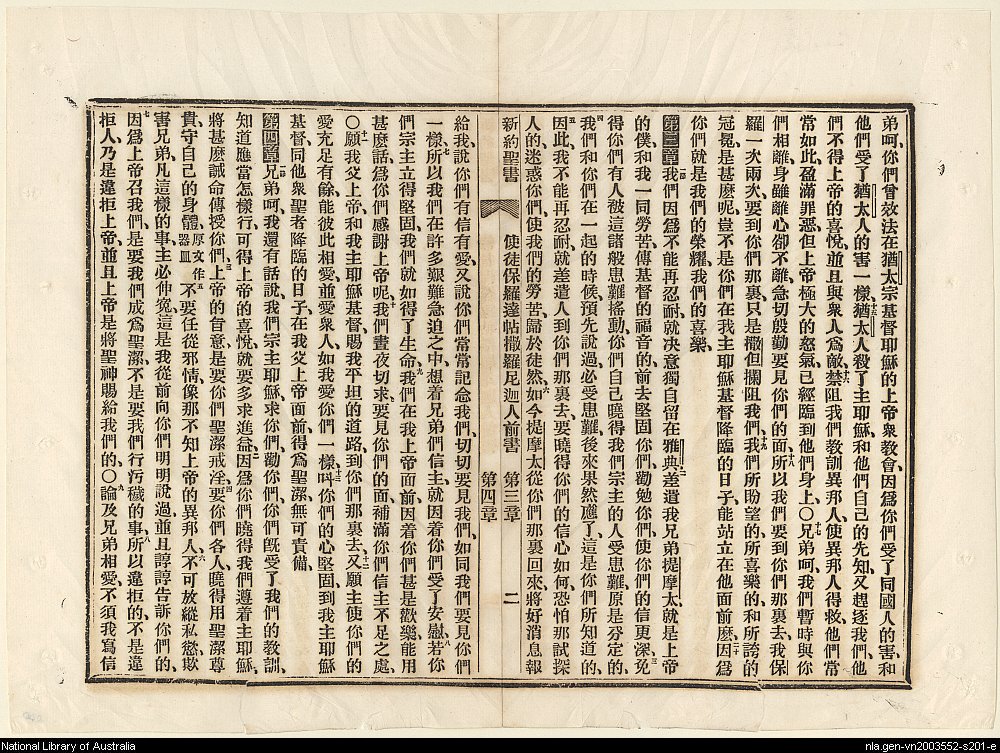 弟呵、你們曾效法在猶太宗基督耶穌的上帝衆教會、因爲你們受了同國人的害、和
他們受了猶太人的害一樣、十五猶太人殺了主耶穌、和他們自己的先知、又趕逐我們、他
們不得上帝的喜悅、並且與衆人爲敵、十六禁阻我們教訓異邦人、使異邦人得救、他們常
常如此盈滿罪惡、但上帝極大的怒氣已經臨到他們身上、〇十七兄弟呵、我們暫時與你
們相離、身雖離、心卻不離、急切殷勤要見你們的面、十八所以我們要到你們那裏去、我保
羅一次兩次要到你們那裏、只是撒但攔阻我們、十九我們所盼望的、所喜樂的、和所誇的
冠冕是甚麽呢、豈不是你們在我主耶穌基督降臨的日子、能站立在他面前麽、二十因爲
你們就是我們的榮耀、我們的喜樂、
第三章一節我們因爲不能再忍耐、就決意獨自留在雅典、二差遣我兄弟提摩太、就是上帝
的僕、和我一同勞苦、傳基督的福音的、前去堅固你們、勸勉你們、使你們的信更深、三免
得你們有人被這諸般患難搖動、你們自己曉得我們宗主的人受患難、原是分定的、
四我們和你們在一起的時候、預先說過、必受患難、後來果然應了、這是你們所知道的、
五因此、我不能再忍耐、就差遣人到你們那裏去、要曉得你們的信心如何、恐怕那試探
人的迷惑你們、使我們的勞苦歸於徒然、六如今提摩太從你們那裏回來、將好消息報
新約聖書　使徒保羅達帖撒羅尼迦人前書　第三章　第四章　二
給我、說你們有信有愛、又說你們常常記念我們、切切要見我們、如同我們要見你們
一樣、七所以我們在許多艱難急迫之中、想着兄弟們信主、就因着你們受了安慰、八若你
們宗主立得堅固、我們就如得了生命、九我們在我上帝面前、因着你們甚是歡樂、能用
甚麽話爲你們感謝上帝呢、十我們晝夜切求要見你們的面、補滿你們信主不足之處、
〇十一願我父上帝和我主耶穌基督、賜我平坦的道路到你們那裏去、十二又願主使你們的
愛充足有餘、能彼此相愛、並愛衆人、如我愛你們一樣、十三叫你們的心堅固、到我主耶穌
基督同他衆聖者降臨的日子、在我父上帝面前得爲聖潔、無可責備、
第四章一節兄弟呵、我還有話說、我們宗主耶穌、求你們勸你們、你們旣受了我們的教訓、
知道應當怎樣行、可得上帝的喜悅、就要多求進益、二因爲你們曉得我們遵着主耶穌、
將甚麽誡命傳授你們、三上帝的旨意是要你們聖潔、戒淫、四要你們各人曉得用聖潔尊
貴守自己的身體、原文作器皿五不要任從邪情、像那不知上帝的異邦人、六不可放縱私慾、欺
害兄弟、凡這樣的事、主必伸冤、這是我從前向你們明明說過、並且諄諄告訴你們的、
七因爲上帝召我們、是要我們成爲聖潔、不是要我們行污穢的事、八所以違拒的、不是違
拒人、乃是違拒上帝、並且上帝是將聖神賜給我們的、〇九論及兄弟相愛、不須我寫信
National Library of Australia
nla.gen-vn2003552-s201-e